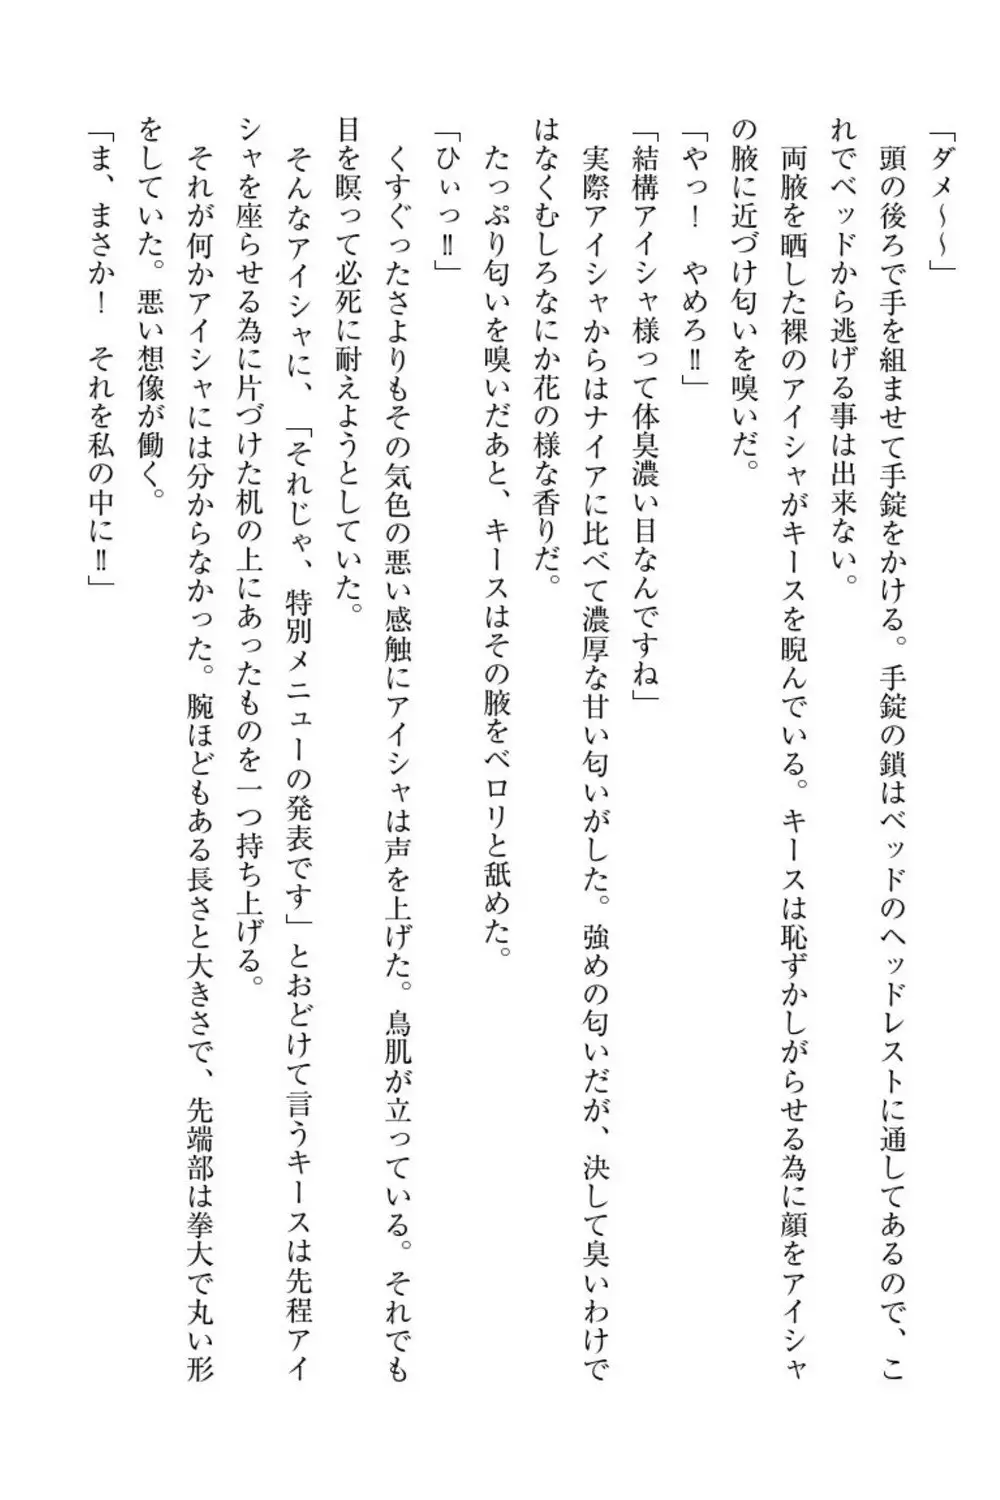 「ダメ～～」
　頭の後ろで手を組ませて手錠をかける。手錠の鎖はベッドのヘッドレストに通してあるので、こ
れでベッドから逃げる事は出来ない。
　両腋を晒した裸のアイシャがキースを睨んでいる。キースは恥ずかしがらせる為に顔をアイシャ
の腋に近づけ匂いを嗅いだ。
「やっ！　やめろ‼」
「結構アイシャ様って体臭濃い目なんですね」
　実際アイシャからはナイアに比べて濃厚な甘い匂いがした。強めの匂いだが、決して臭いわけで
はなくむしろなにか花の様な香りだ。
　たっぷり匂いを嗅いだあと、キースはその腋をベロリと舐めた。
「ひぃっ‼」
　くすぐったさよりもその気色の悪い感触にアイシャは声を上げた。鳥肌が立っている。それでも
目を瞑って必死に耐えようとしていた。
　そんなアイシャに、「それじゃ、特別メニューの発表です」とおどけて言うキースは先程アイ
シャを座らせる為に片づけた机の上にあったものを一つ持ち上げる。
　それが何かアイシャには分からなかった。腕ほどもある長さと大きさで、先端部は拳大で丸い形
をしていた。悪い想像が働く。
「ま、まさか！　それを私の中に‼」